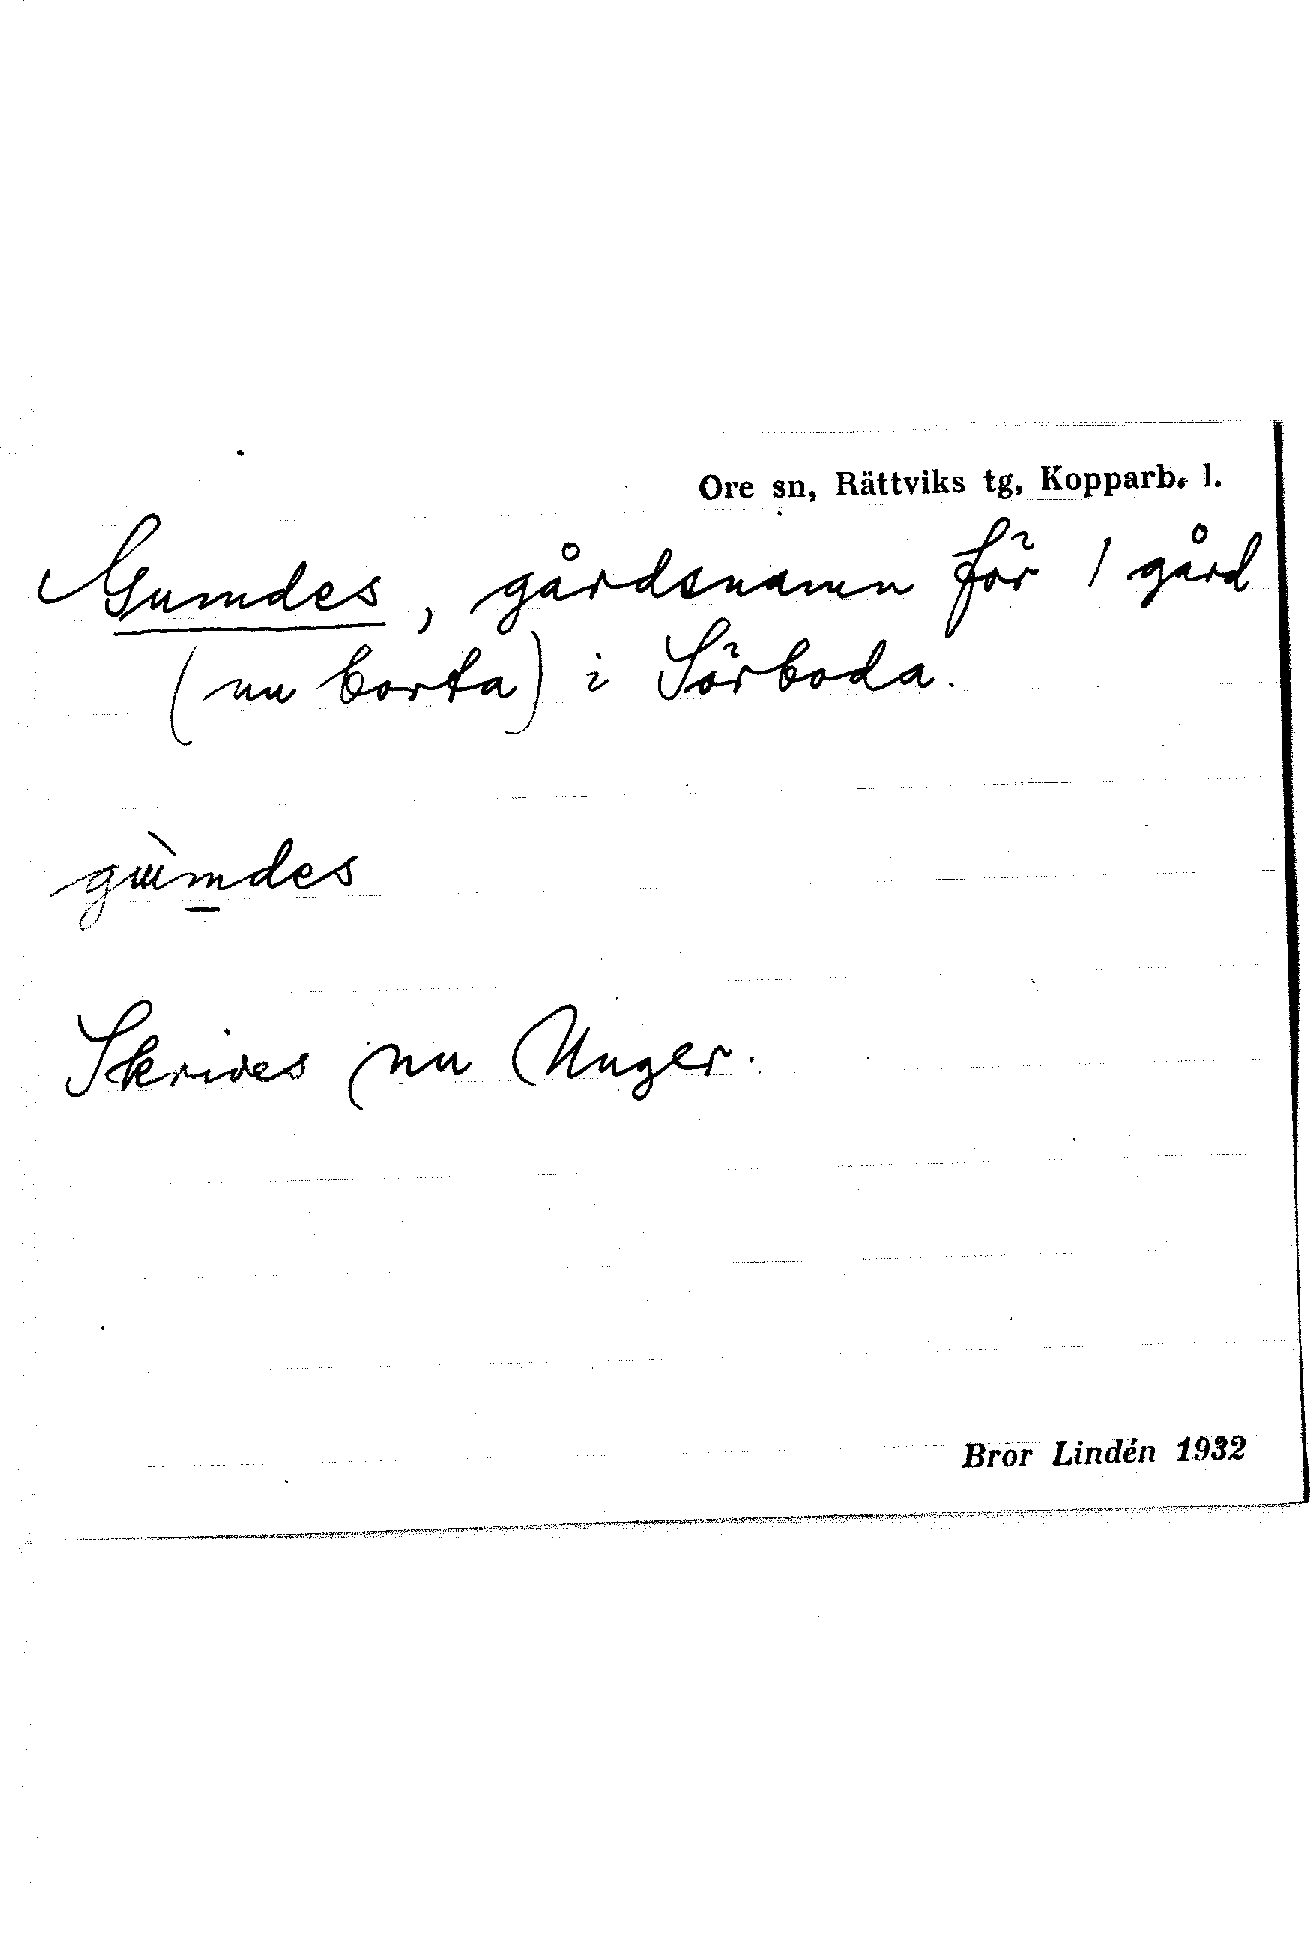 Ore sn, Rättviks tg, Kopparb. l.
Gumdes, gårdsnamn för 1 gård
(nu borta) i Sörboda.
gɯ̀mdes
Skrives nu Unger.
Bror Lindén 1932